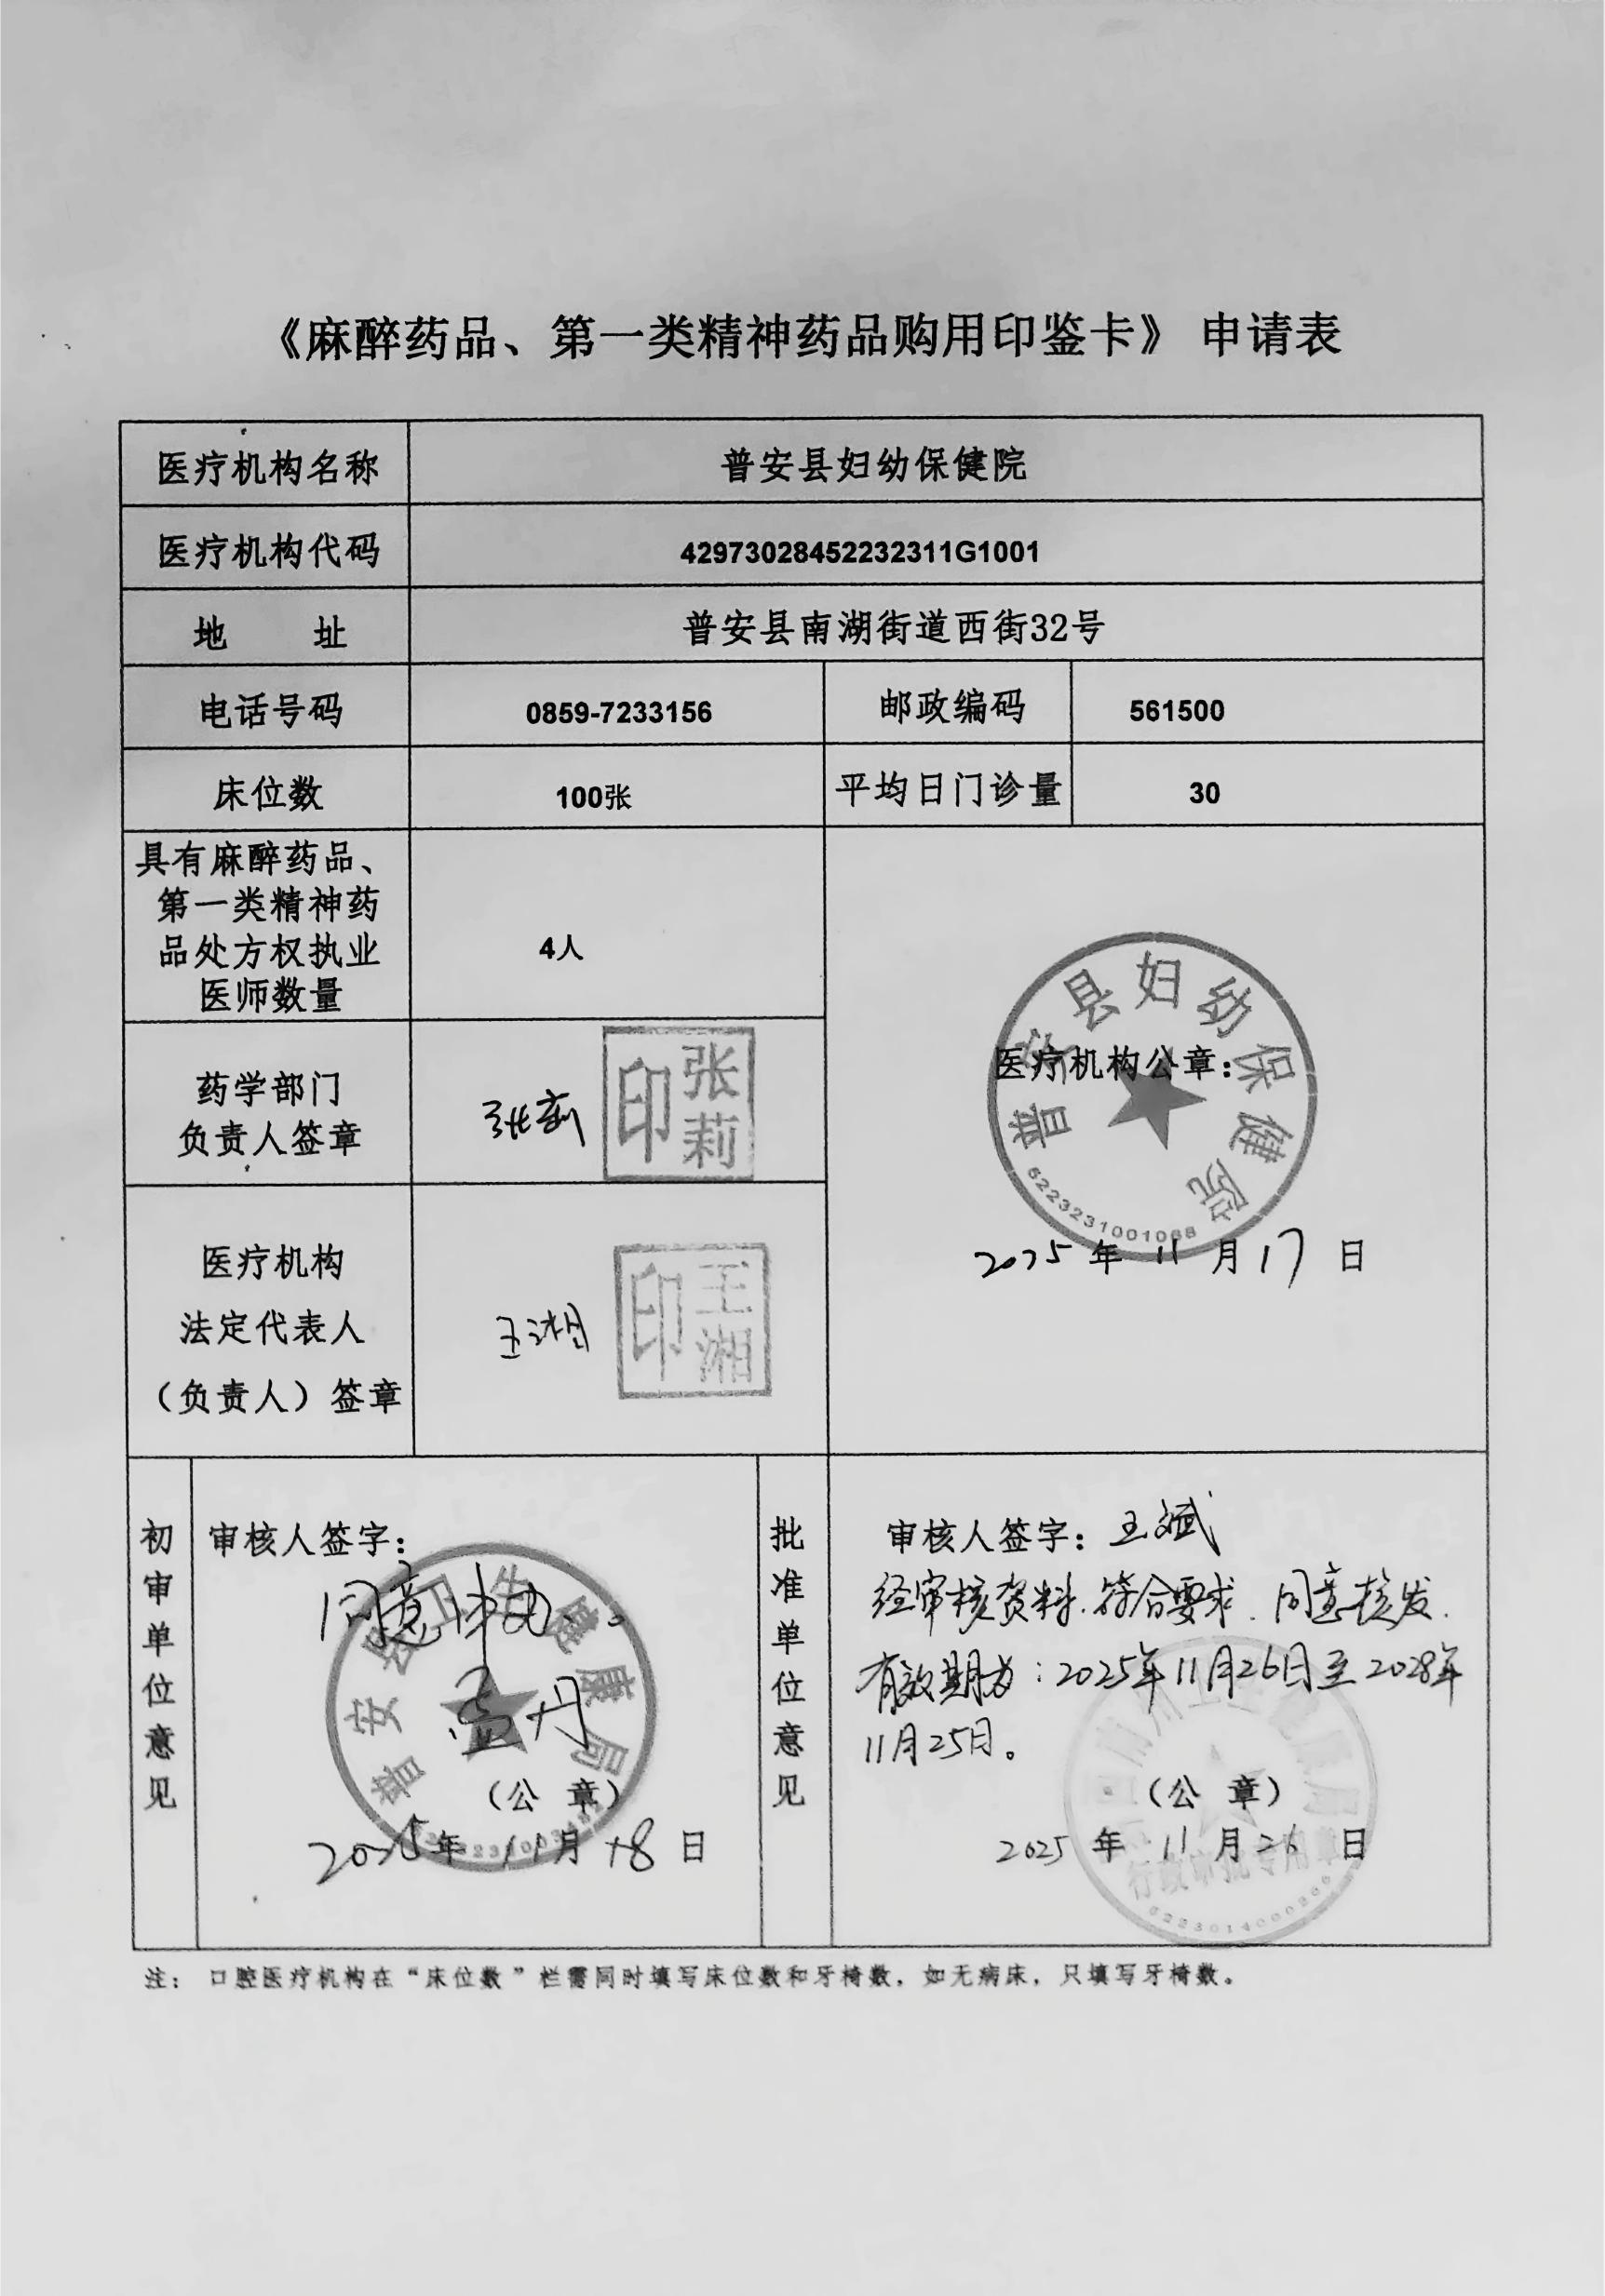 《麻醉药品、第一类精神药品购用印鉴卡》 申请表
医疗机构名称 普安县妇幼保健院
医疗机构代码 42973028452232311G1001
地 址 普安县南湖街道西街32号
电话号码 0859-7233156 邮政编码 561500
床位数 100张 平均日门诊量 30
具有麻醉药品、
第一类精神药
品处方权执业
医师数量
4人
药学部门
负责人签章
张莉
张莉印
医疗机构
法定代表人
（负责人）签章
王湘
王湘印
普安县妇幼保健院
医疗机构公章：
5223231001088
2025年11月17日
初审单位意见
审核人签字：
同意
丹
普安县卫生健康局
（公 章）
2025年11月18日
批准单位意见
审核人签字：王斌
经审核资料，符合要求，同意核发，
有效期为：2025年11月26日至2028年
11月25日。
（公 章）
2025年11月26日
行政审批专用章
注： 口腔医疗机构在“床位数”栏需同时填写床位数和牙椅数，如无病床，只填写牙椅数。